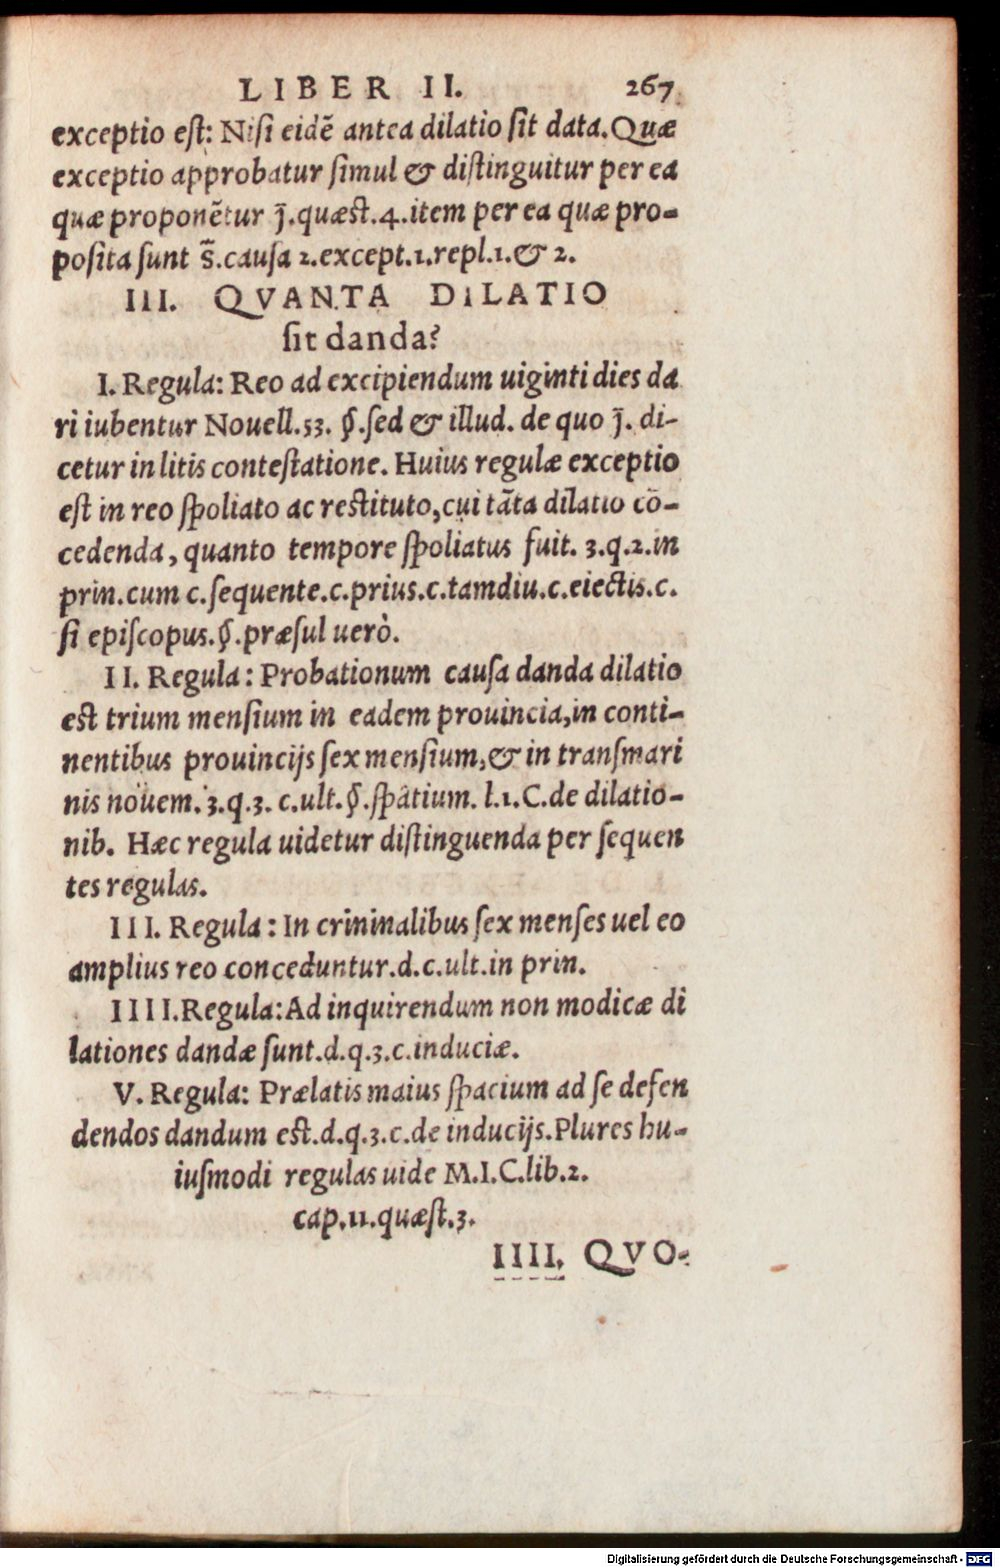 LIBER II. 267
exceptio eſt: Niſi eidẽ antea dilatio ſit data. Quæ
exceptio approbatur ſimul & diſtinguitur per ea
quæ proponẽtur j̃. quæſt. 4. item per ea quæ pro-
poſita ſunt s̃. cauſa 2. except. 1. repl. 1. & 2.
III. QVANTA DILATIO
ſit danda?
I. Regula: Reo ad excipiendum uiginti dies da
ri iubentur Nouell. 53. §. ſed & illud. de quo j̃. di-
cetur in litis conteſtatione. Huius regulæ exceptio
eſt in reo ſpoliato ac reſtituto, cui tãta dilatio cõ-
cedenda, quanto tempore ſpoliatus fuit. 3. q. 2. in
prin. cum c. ſequente. c. prius. c. tamdiu. c. eiectis. c.
ſi epiſcopus. §. præſul uerò.
II. Regula: Probationum cauſa danda dilatio
eſt trium menſium in eadem prouincia, in conti-
nentibus prouincijs ſex menſium, & in tranſmari
nis nouem. 3. q. 3. c. ult. §. ſpatium. l. 1. C. de dilatio-
nib. Hæc regula uidetur diſtinguenda per ſequen
tes regulas.
III. Regula: In criminalibus ſex menſes uel eo
amplius reo conceduntur. d. c. ult. in prin.
IIII. Regula: Ad inquirendum non modicæ di
lationes dandæ ſunt. d. q. 3. c. induciæ.
V. Regula: Prælatis maius ſpacium ad ſe defen
dendos dandum eſt. d. q. 3. c. de inducijs. Plures hu-
iuſmodi regulas uide M. I. C. lib. 2.
cap. 11. quæſt. 3.
IIII. QVO-
Digitalisierung gefördert durch die Deutsche Forschungsgemeinschaft - DFG